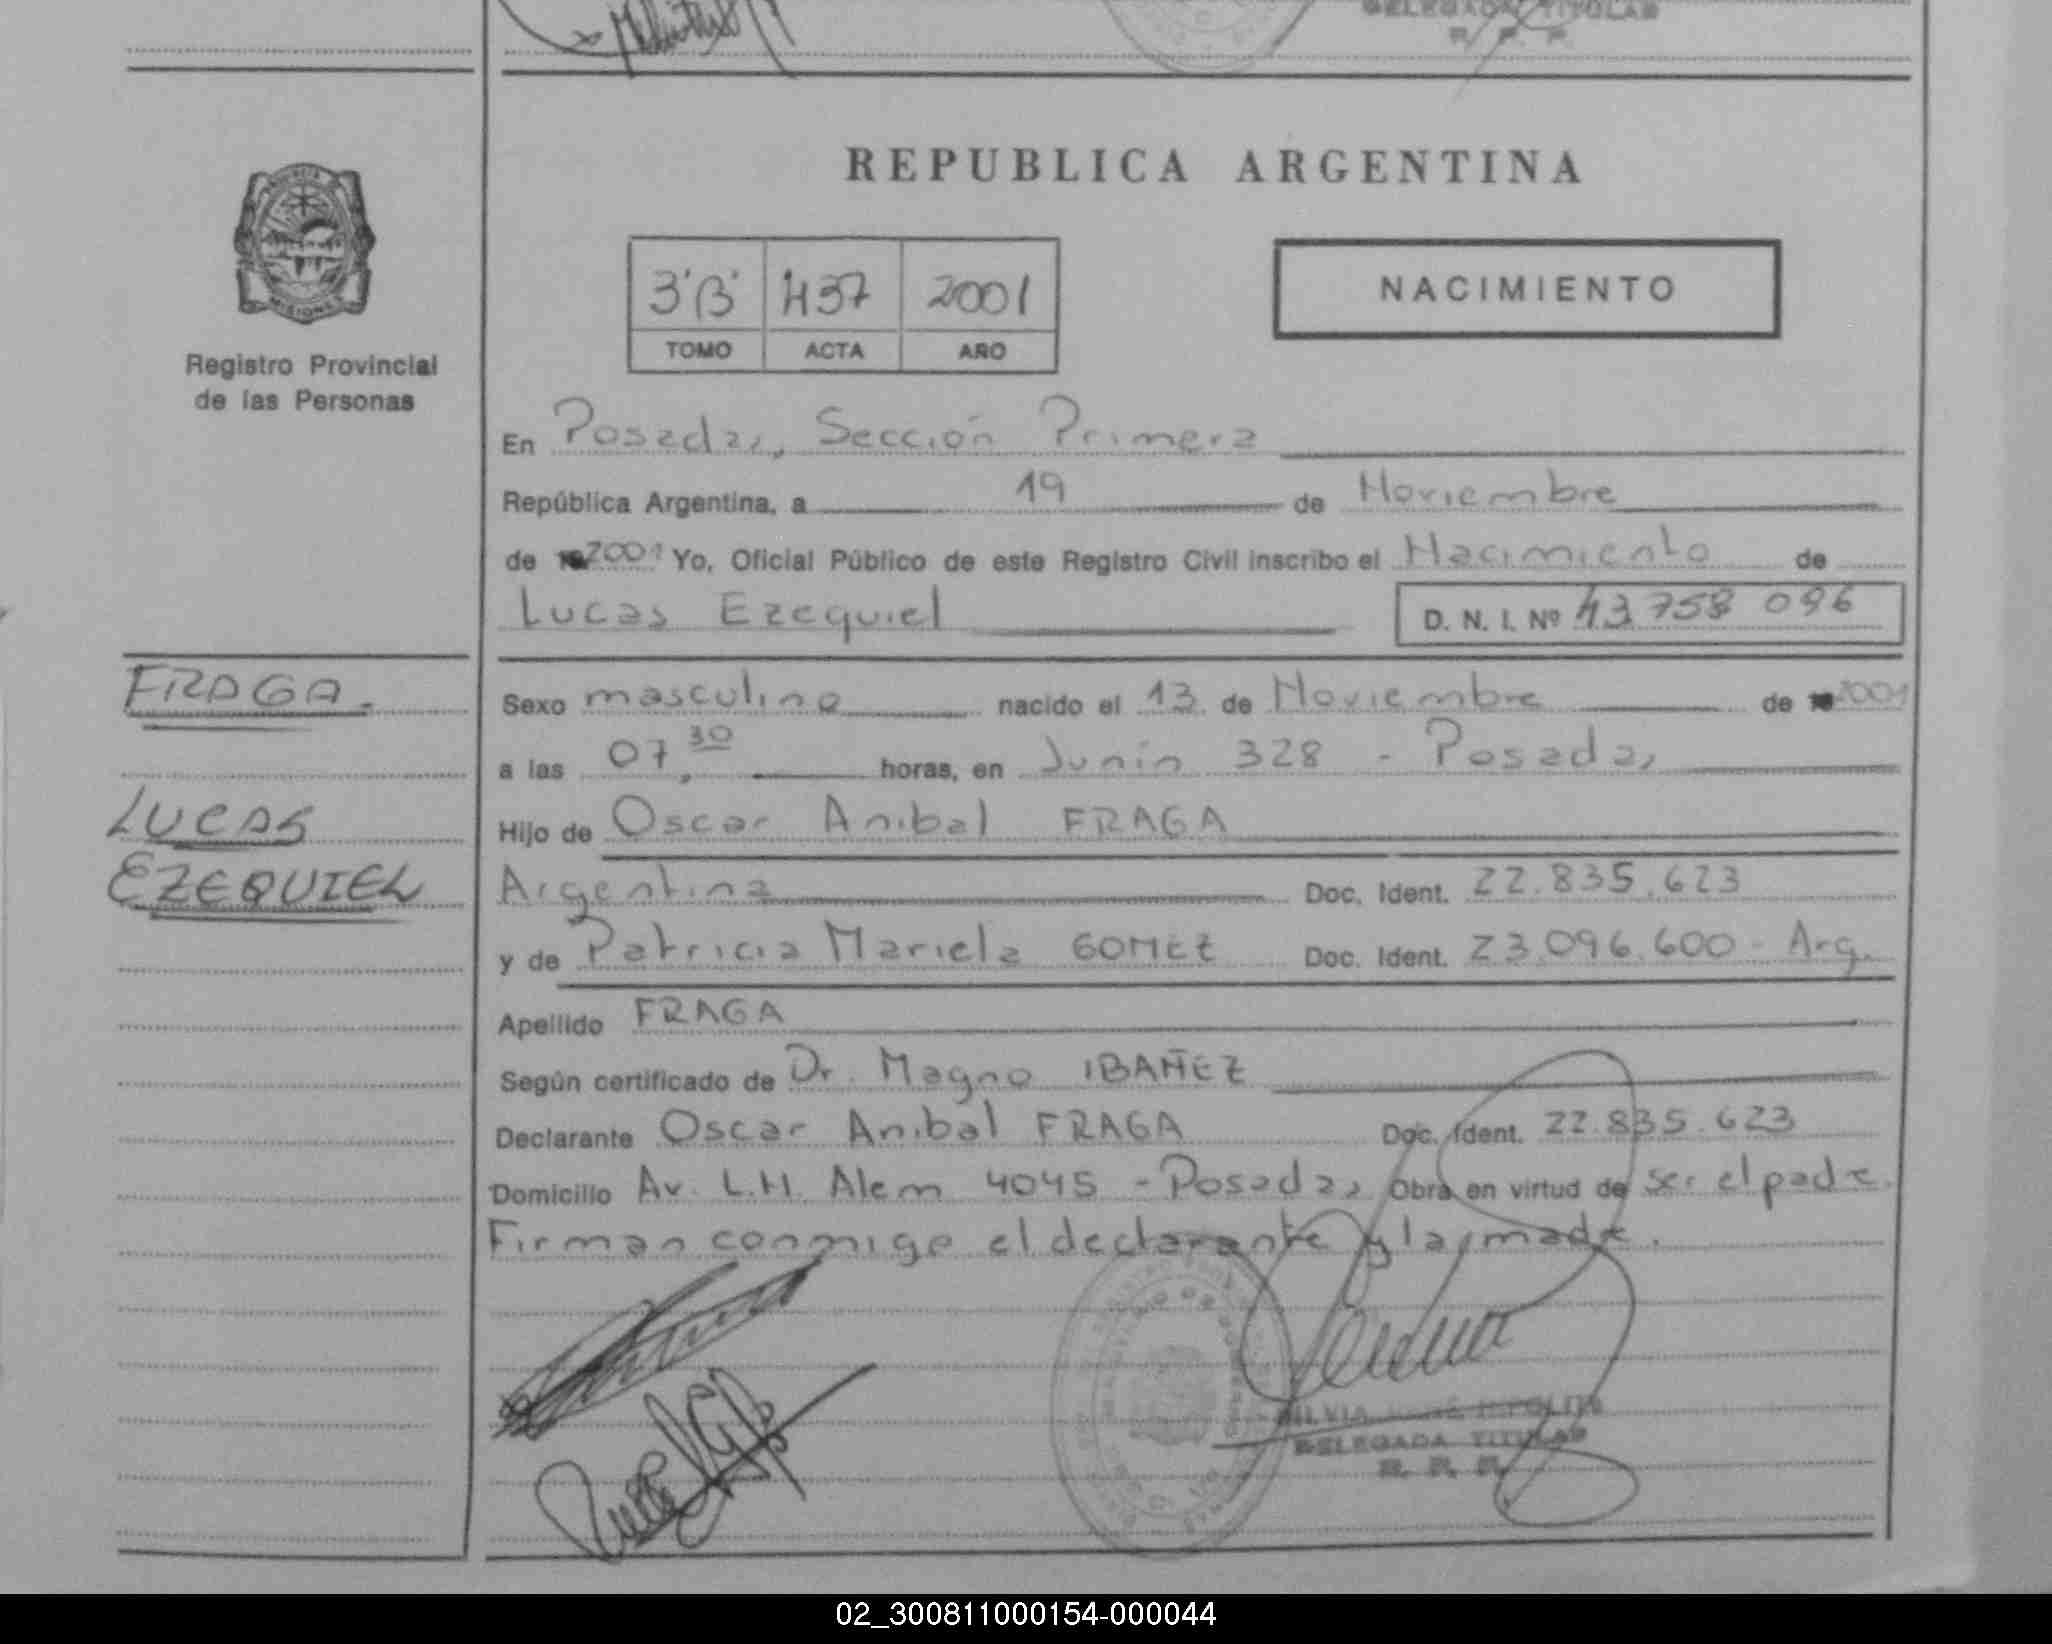 DELEGADA TITULAR
R. P. P.
REPUBLICA ARGENTINA
MISIONES
Registro Provincial
de las Personas
3'B' 437 2001
TOMO ACTA AÑO
NACIMIENTO
En Posadas, Sección Primera
República Argentina, a 19 de Noviembre
de 2001 Yo, Oficial Público de este Registro Civil inscribo el Nacimiento de
Lucas Ezequiel D. N. I. Nº 43.758 096
FRAGA.
LUCAS
EZEQUIEL
Sexo masculino nacido el 13 de Noviembre de 2001
a las 07,30 horas, en Junín 328 - Posadas
Hijo de Oscar Anibal FRAGA
Argentina Doc. Ident. 22.835.623
y de Patricia Mariela GOMEZ Doc. Ident. 23.096.600 - Arg.
Apellido FRAGA
Según certificado de Dr. Magno IBAÑEZ
Declarante Oscar Anibal FRAGA Doc. Ident. 22.835.623
Domicilio Av. L.N. Alem 4045 - Posadas Obra en virtud de ser el padre.
Firman conmigo el declarante y la madre.
SILVIA IPOLITO
DELEGADA TITULAR
R. P. P.
02_300811000154-000044